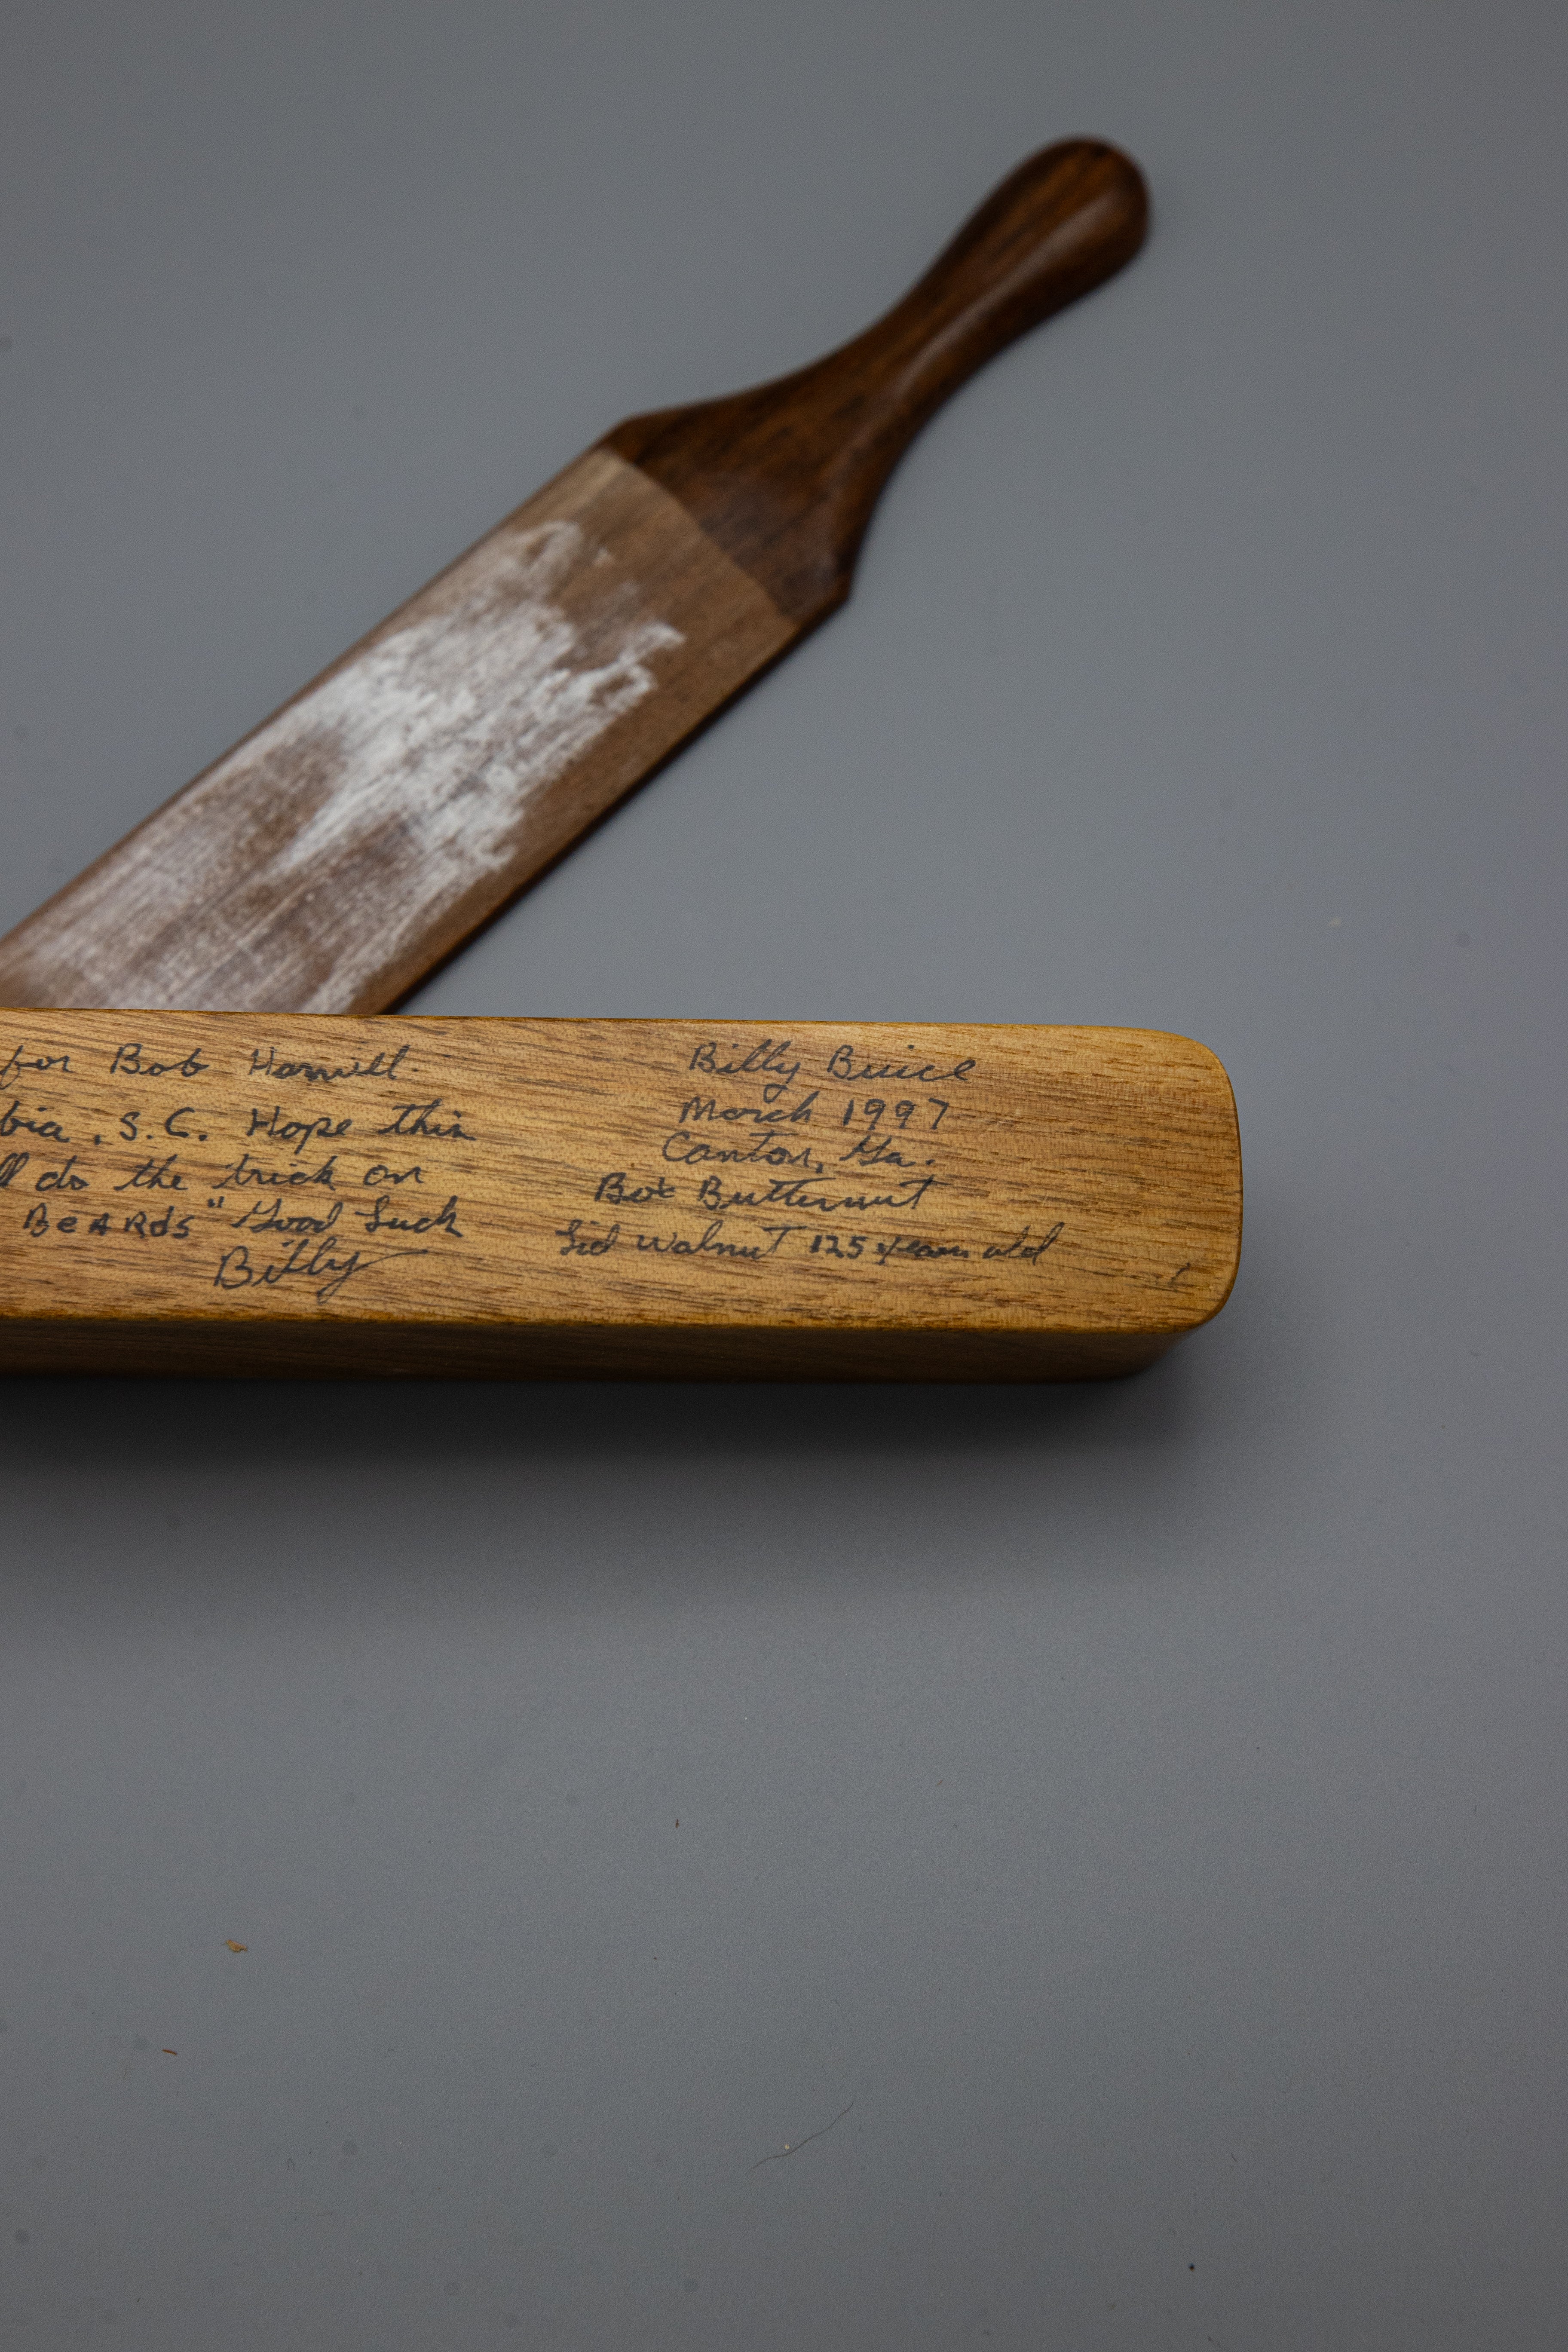 for Bob Harwell.
bia, S.C. Hope this
ll do the trick on
BeARds" Good Luck
Billy
Billy Buice
March 1997
Canton, Ga.
Box Butternut
Lid Walnut 125 years old